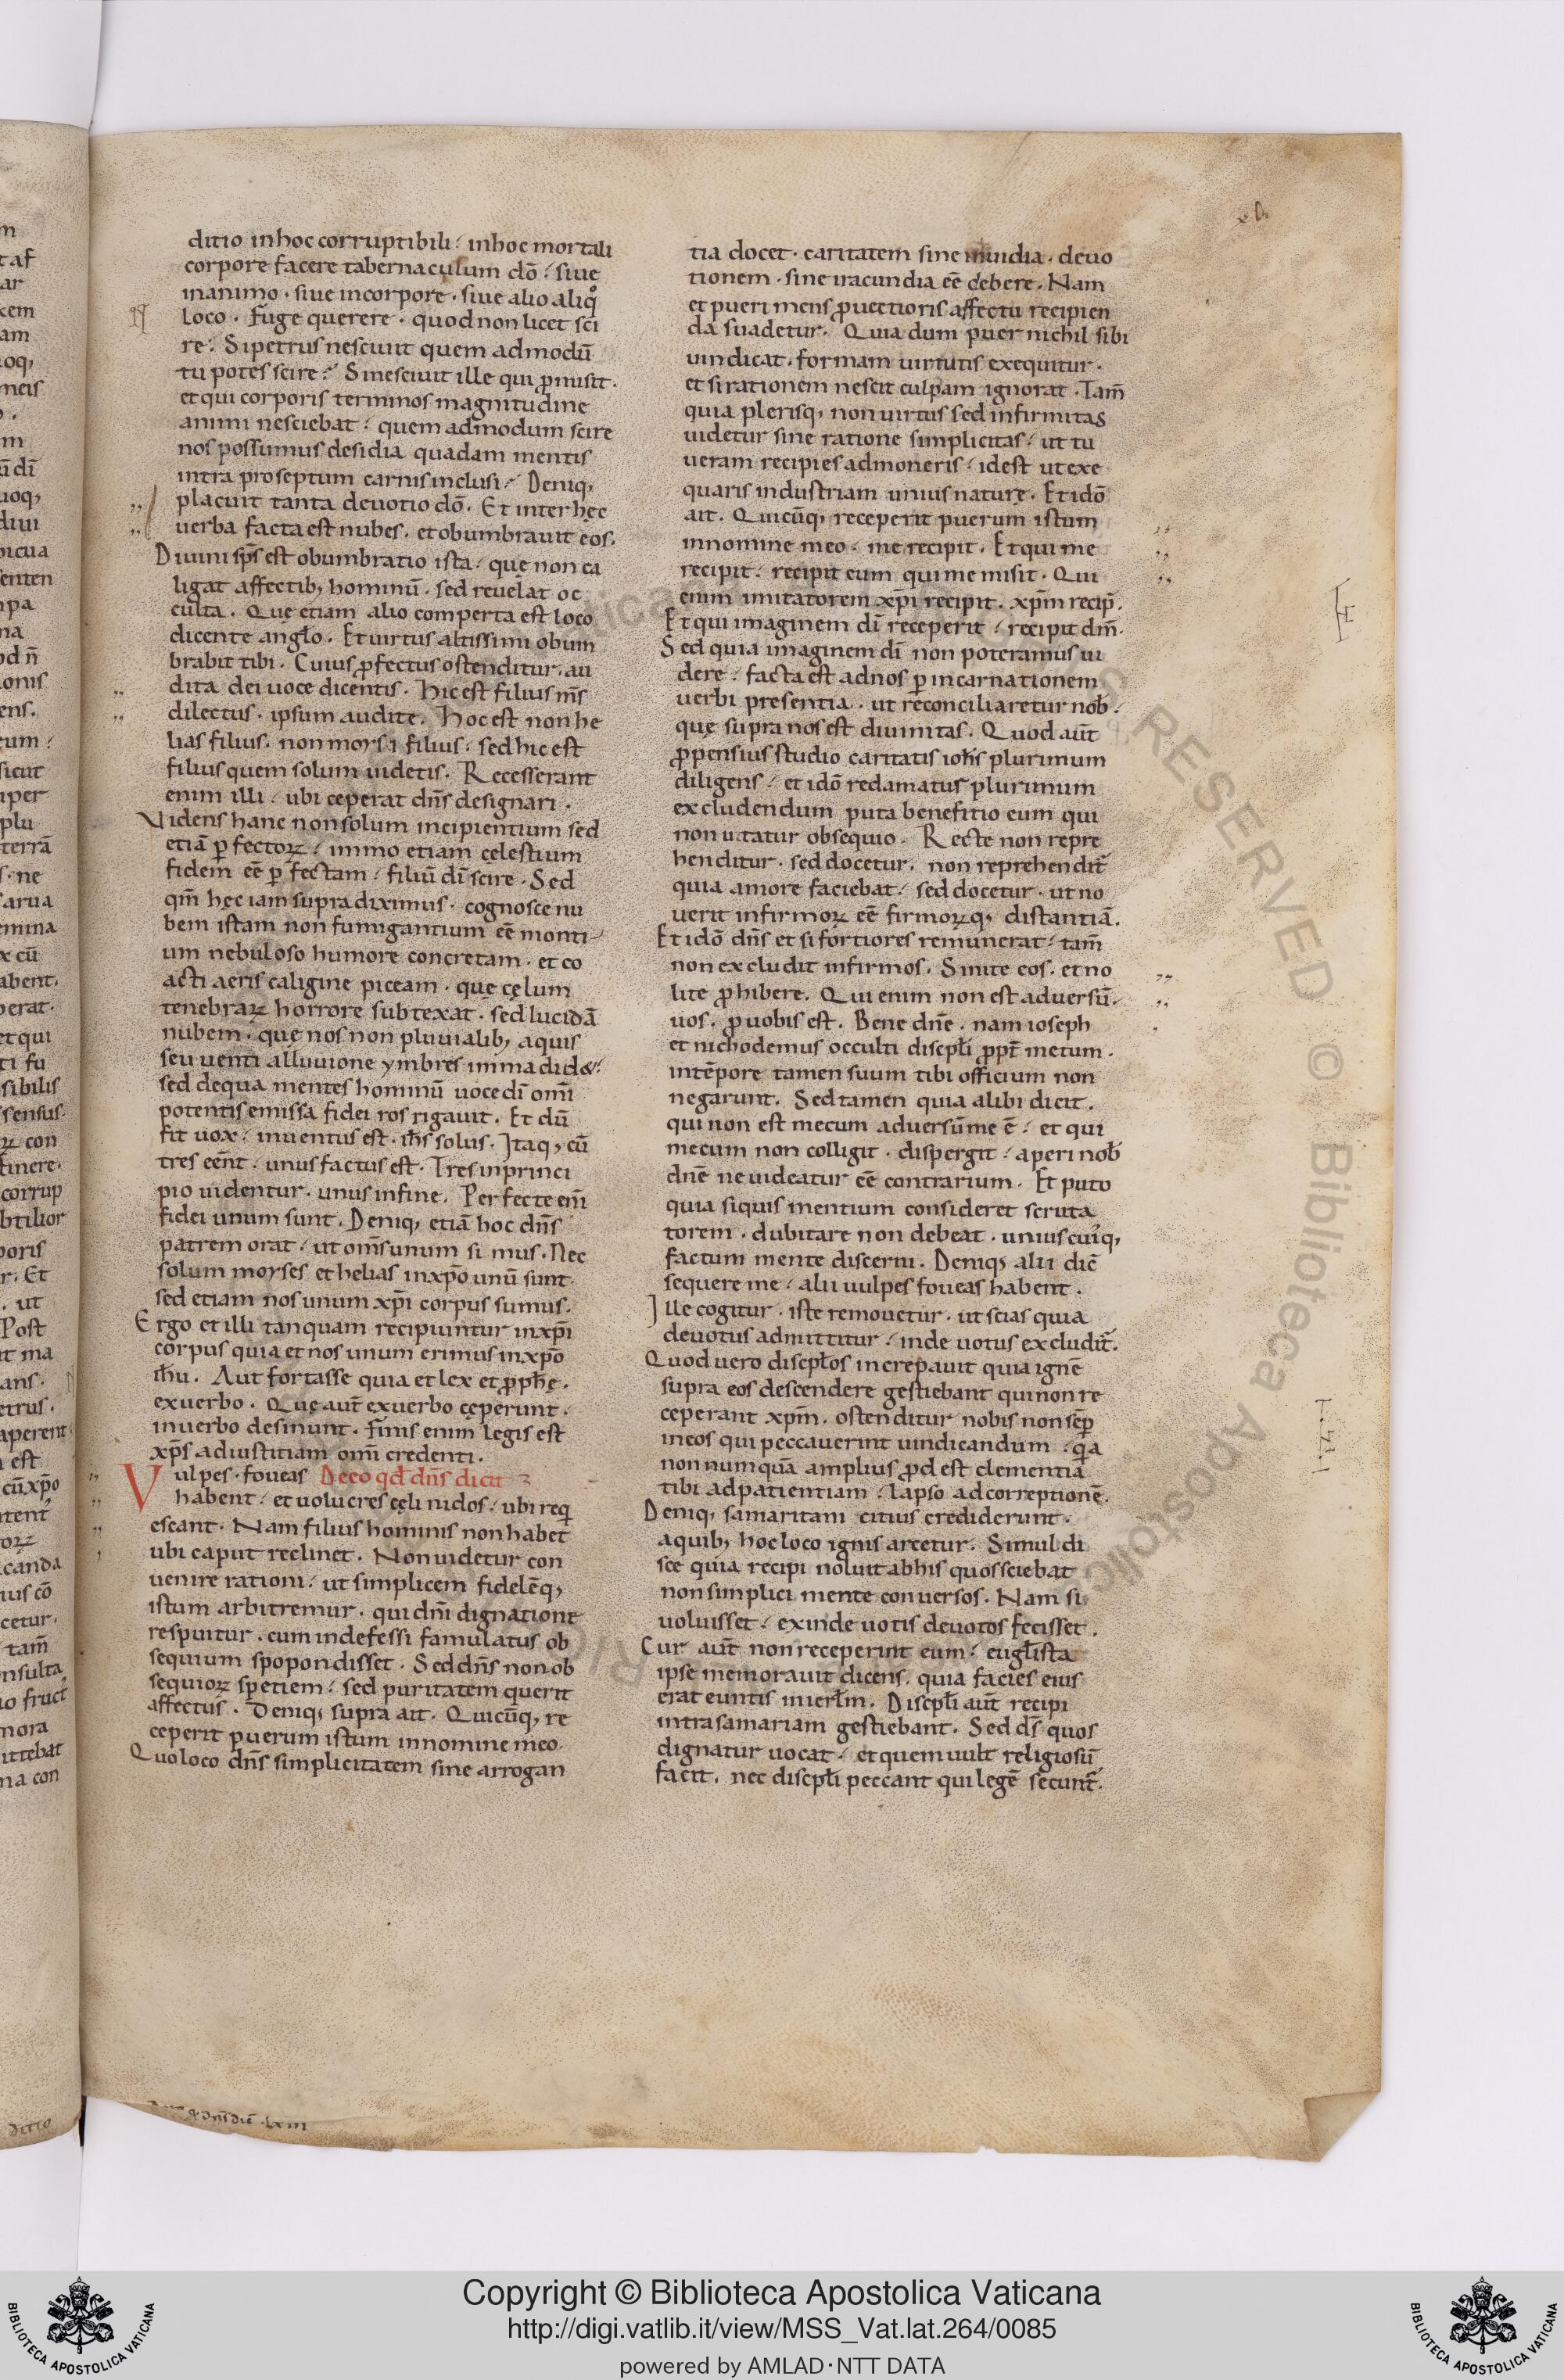 ditio inhoc corruptibili. inhoc mortali
corpore facere tabernaculum dō. siue
inanimo. siue incorpore. siue alio aliqͦ
loco. Fuge querere. quod non licet sci
re. Si petrus nesciuit quem admodū
tu potes scire? Si nesciuit ille qui ꝓmisit.
et qui corporis terminos magnitudine
animi nesciebat. quem admodum scire
nos possumus desidia quadam mentis
intra proseptum carnis inclusi? Deniq,
placuit tanta deuotio dō. Et inter hęc
uerba facta est nubes. et obumbrauit eos.
Diuini sp̄s est obumbratio ista. quę non ca
ligat affectib; hominū. sed reuelat oc
culta. Quę etiam alio comperta est loco
dicente anglo. Et uirtus altissimi obum
brabit tibi. Cuius ꝓfectus ostenditur. au
dita dei uoce dicentis. Hic est filius m̄s
dilectus. ipsum audite. Hoc est non he
lias filius. non moysi filius. sed hic est
filius quem solum uidetis. Recesserant
enim illi. ubi ceperat dn̄s designari.
Videns hanc non solum incipientium sed
etiā ꝑfectoꝝ. immo etiam cęlestium
fidem eē ꝑfectam. filiū dī scire. Sed
qm̄ hęc iam supra diximus. cognosce nu
bem istam non fumigantium eē monti
um nebuloso humore concretam. et co
acti aeris caligine piceam. quę cęlum
tenebraꝝ horrore subtexat. sed lucidā
nubem. quę nos non pluuialib; aquis
seu uenti alluuione ymbres immadid&.
sed dequa mentes hominū uoce dī omī
potentis emissa fidei ros rigauit. Et dū
fit uox. inuentus est. ih̄s solus. Itaq; cū
tres eēnt. unus factus est. Tres inprinci
pio uidentur. unus infine. Perfecte em̄
fidei unum sunt. Deniq; etiā hoc dn̄s
patrem orat. ut om̄s unum simus. Nec
solum moyses et helias inxp̄o unū sunt.
sed etiam nos unum xp̄i corpus sumus.
Ergo et illi tanquam recipiuntur inxp̄i
corpus quia et nos unum erimus inxp̄o
ih̄u. Aut fortasse quia et lex et ꝓph̄ę.
exuerbo. Quę aut̄ exuerbo cęperunt.
inuerbo desinunt. Finis enim legis est
xp̄s adiustitiam om̄i credenti.
Vulpes. foueas Deeo qd̄ dn̄s dicit
habent. et uolucres cęli nidos. ubi reqi
escant. Nam filius hominis non habet
ubi caput reclinet. Non uidetur con
uenire rationi. ut simplicem fidelēq;
istum arbitremur. qui dn̄i dignatione
respuitur. cum indefessi famulatus ob
sequium spopondisset. Sed dn̄s non ob
sequioꝝ spetiem. sed puritatem querit
affectus. Deniq; supra ait. Quicūq; re
ceperit puerum istum innomine meo.
Quo loco dn̄s simplicitatem sine arrogan
tia docet. caritatem sine inuidia. deuo
tionem. sine iracundia eē debere. Nam
et pueri mens ꝓuectioris affectu recipien
da suadetur. Quia dum puer nichil sibi
uindicat. formam uirtutis exequitur.
et si rationem nescit culpam ignorat. Tam̄
quia plerisq; non uirtus sed infirmitas
uidetur sine ratione simplicitas. ut tu
ueram recipies admoneris. idest ut exe
quaris industriam unius naturę. Et idō
ait. Quicūq; receperit puerum istum
innomine meo. me recipit. Et qui me
recipit. recipit eum qui me misit. Qui
enim imitatorem xp̄i recipit. xp̄m recip̄.
Et qui imaginem dī receperit. recipit dm̄.
Sed quia imaginem dī non poteramus ui
dere. facta est adnos ꝑincarnationem
uerbi presentia. ut reconciliaretur nob̄.
quę supra nos est diuinitas. Quod aut̄
ꝓpensius studio caritatis ioh̄s plurimum
diligens. et idō redamatus plurimum
excludendum puta benefitio eum qui
non utatur obsequio. Recte non repre
henditur. sed docetur. non reprehendit̄
quia amore faciebat. sed docetur. ut no
uerit infirmoꝝ eē firmoꝝq; distantiā.
Et idō dn̄s et si fortiores remunerat. tam̄
non excludit infirmos. Sinite eos. et no
lite ꝓhibere. Qui enim non est aduersū.
uos. ꝓ uobis est. Bene dn̄e. nam ioseph
et nichodemus occulti discpłi ꝓpt̄ metum.
intēpore tamen suum tibi officium non
negarunt. Sed tamen quia alibi dicit.
qui non est mecum aduersū me ē. et qui
mecum non colligit. dispergit. aperi nob̄
dn̄e ne uideatur eē contrarium. Et puto
quia siquis mentium consideret scruta
torem. dubitare non debeat. uniuscuiq;
factum mente discerni. Deniq; alii dic̄
sequere me. alii uulpes foueas habent.
Ille cogitur. iste remouetur. ut scias quia
deuotus admittitur. inde uotus excludit̄.
Quod uero discpłos increpauit quia ignē
supra eos descendere gestiebant qui non re
ceperant xp̄m. ostenditur nobis non sēꝑ
ineos qui peccauerint uindicandum. qa
non numquā amplius ꝓdest clementia
tibi adpatientiam. lapso adcorreptionē.
Deniq; samaritani citius crediderunt.
aquib; hoc loco ignis arcetur. Simul di
sce quia recipi noluit abhis quos sciebat
non simplici mente conuersos. Nam si
uoluisset. exinde uotis deuotos fecisset.
Cur aut̄ non receperint eum. euglista
ipse memorauit dicens. quia facies eius
erat euntis inierłm. Discpłi aut̄ recipi
intra samariam gestiebant. Sed dś quos
dignatur uocat. et quem uult religiosū
facit. nec discpłi peccant qui legē secunt̄.
Copyright © Biblioteca Apostolica Vaticana
http://digi.vatlib.it/view/MSS_Vat.lat.264/0085
powered by AMLAD·NTT DATA
BIBLIOTECA APOSTOLICA VATICANA
BIBLIOTECA APOSTOLICA VATICANA